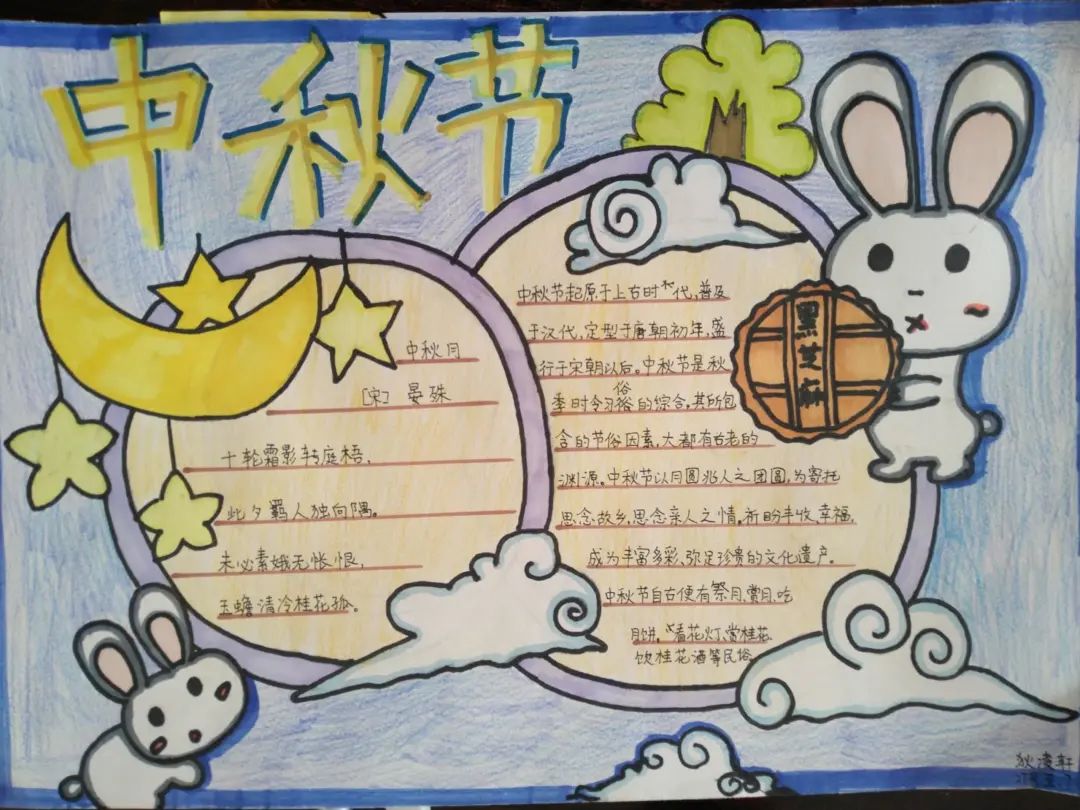 中秋节
中秋月
[宋] 晏殊
十轮霜影转庭梧,
此夕羁人独向隅。
未必素娥无怅恨,
玉蟾清冷桂花孤。
中秋节起原于上古时代,普及
于汉代,定型于唐朝初年,盛
行于宋朝以后。中秋节是秋
季时令习俗的综合,其所包
含的节俗因素,大都有古老的
渊源。中秋节以月圆兆人之团圆,为寄托
思念故乡,思念亲人之情。祈盼丰收、幸福,
成为丰富多彩、弥足珍贵的文化遗产。
中秋节自古便有祭月、赏月、吃
月饼、看花灯、赏桂花、
饮桂花酒等民俗
黑芝麻
狄凌轩